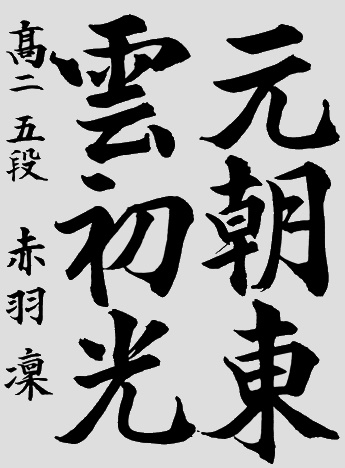 元朝東
雲初光
髙二 五段 赤羽凜